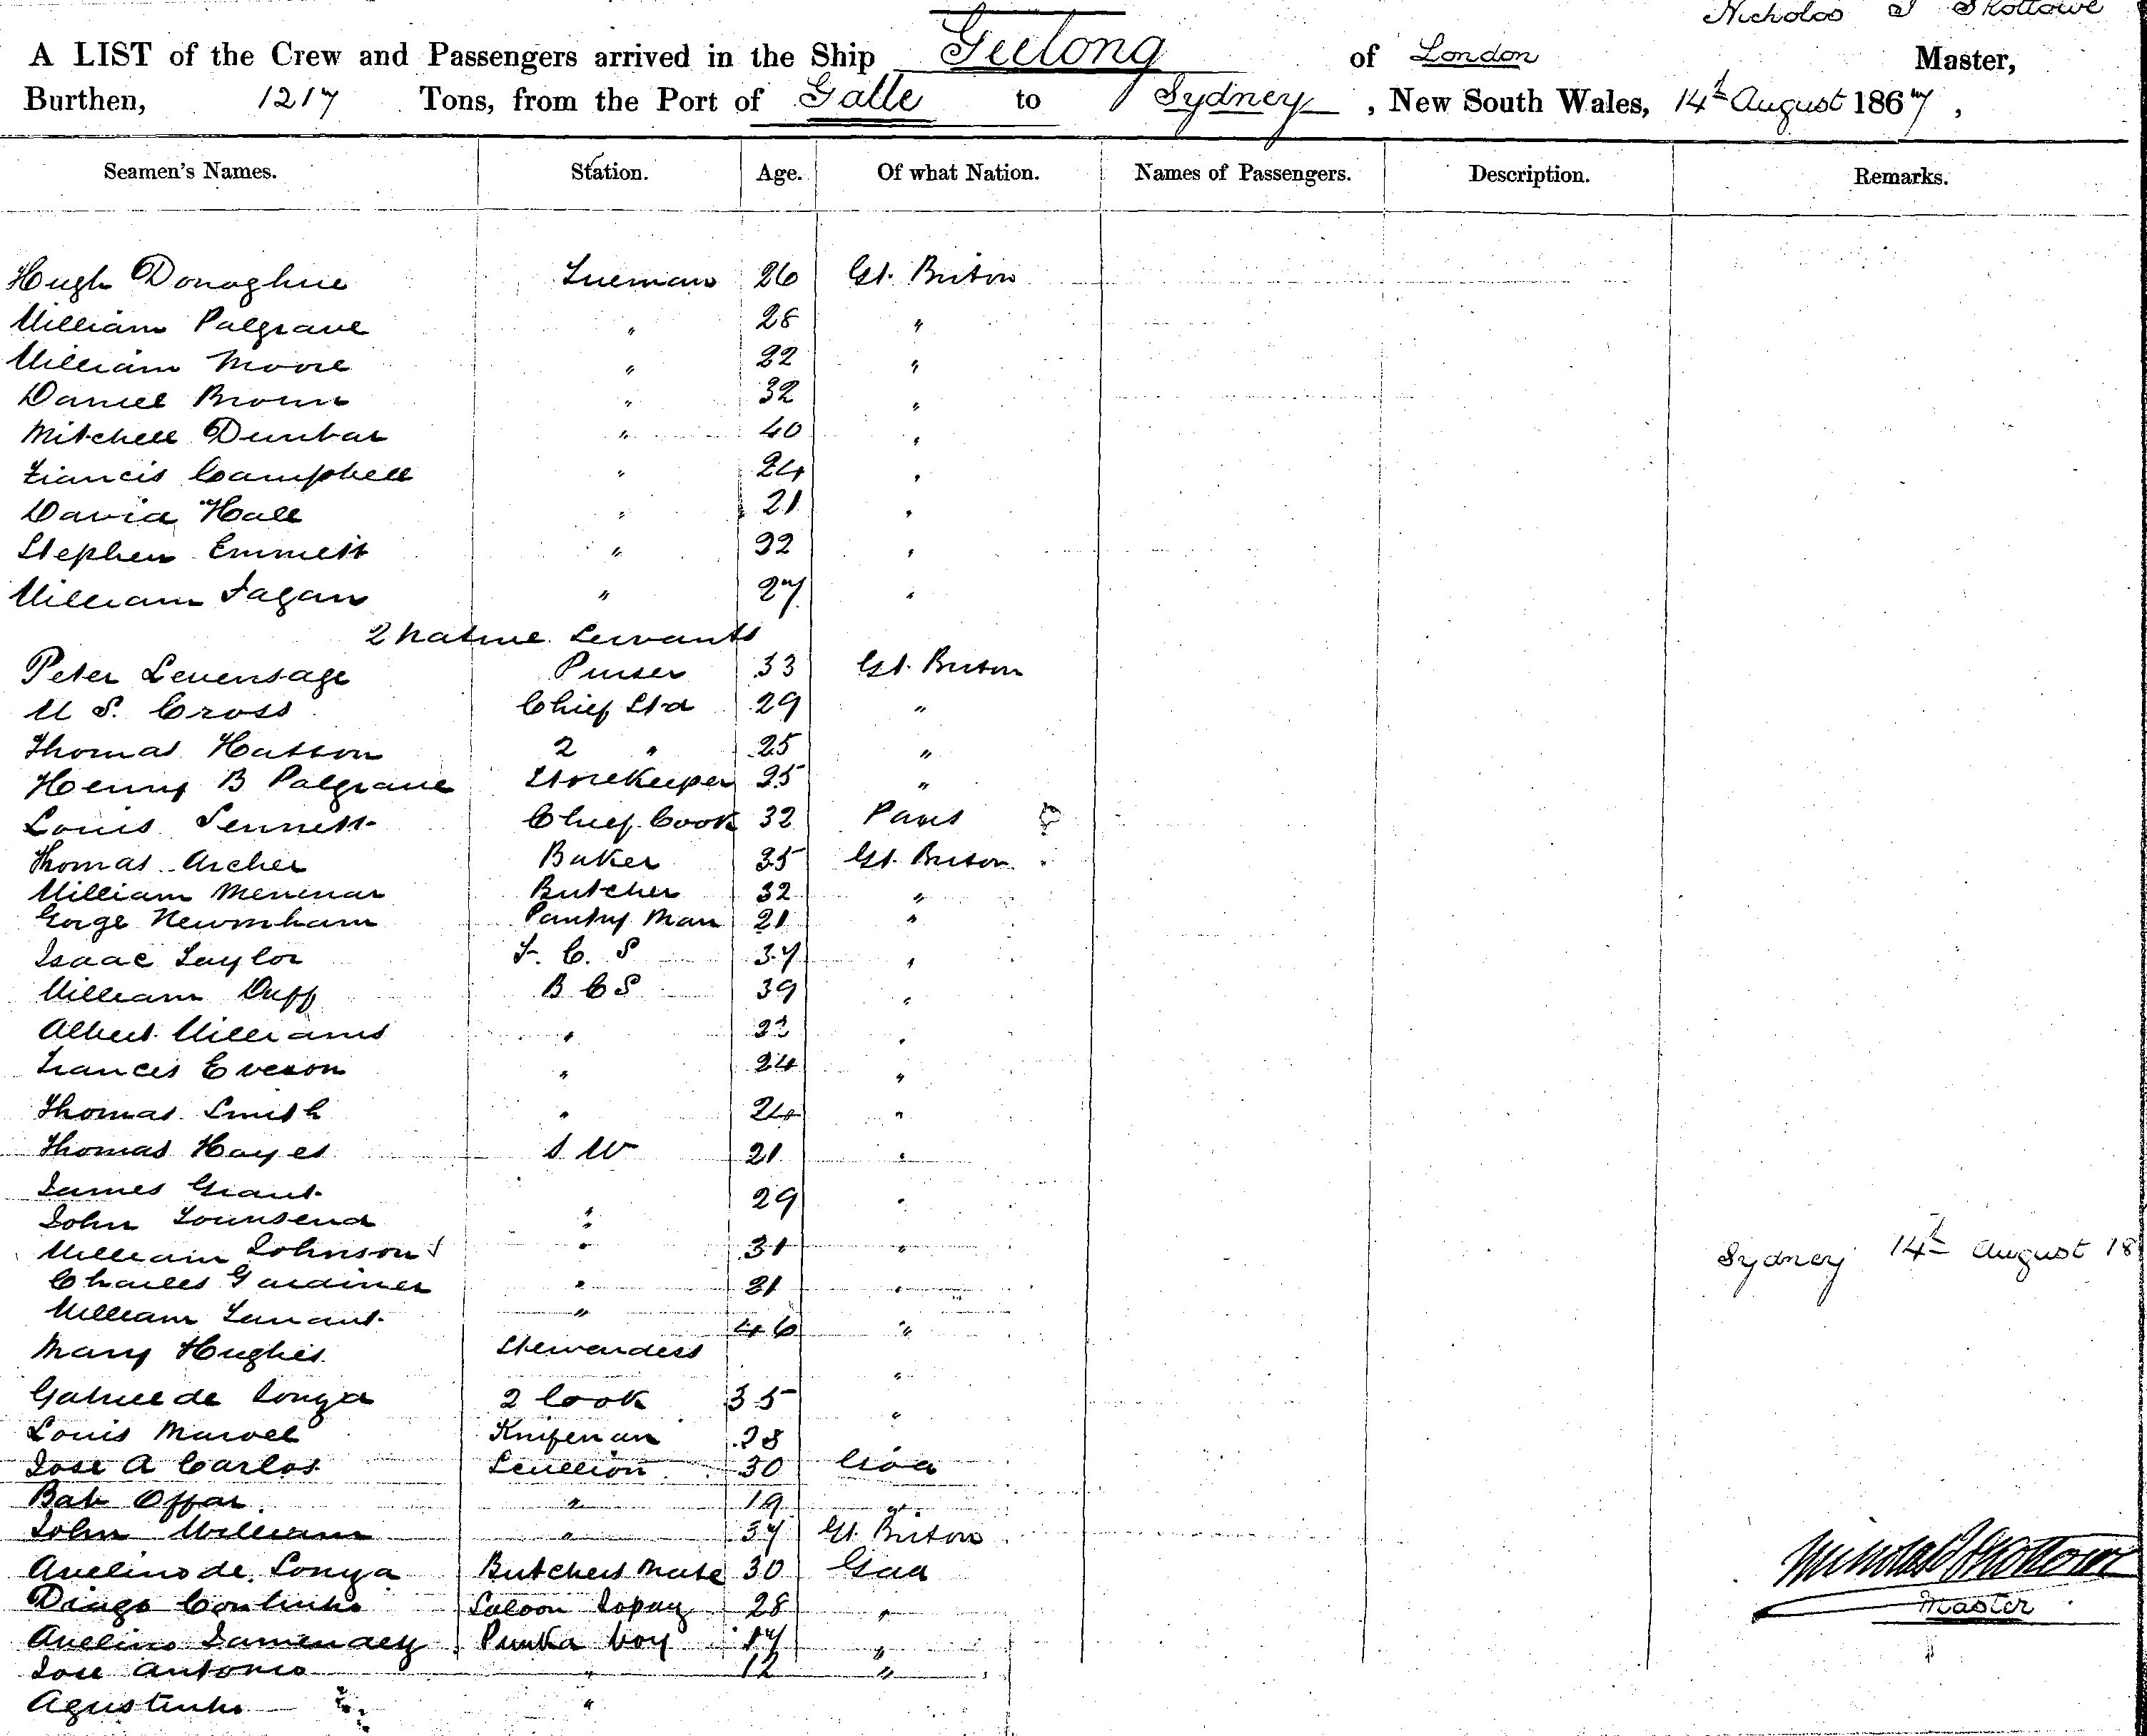 Nicholas J Skottowe
A LIST of the Crew and Passengers arrived in the Ship Geelong of London Master,
Burthen, 1217 Tons, from the Port of Galle to Sydney, New South Wales, 14th August 1867,
Seamen's Names. Station. Age. Of what Nation. Names of Passengers. Description. Remarks.
Hugh Donoghue 26 Gt. Briton
William Palgrave " 28 "
William Moore " 22 "
Daniel Brown " 32 "
Mitchell Dunbar " 40 "
Francis Campbell " 24 "
David Hall " 21 "
Stephen Emmett " 32 "
William Fagan " 27 "
2 native Servants
Peter Levensage Purser 33 Gt. Briton
S. Cross Chief Std 29 "
Thomas Hatson 2 " 25 "
Henry B Palgrave Storekeeper 25 "
Louis Chief Cook 32 Paris
Thomas Archer Baker 35 Gt. Briton
William Butcher 32 "
Gorge Newnham Pantry Man 21 "
Isaac Taylor F. C. S 37 "
William Duff B C S 39 "
Albert Williams " "
Frances Eveson " 24 "
Thomas Smith " 24 "
Thomas Hayes S W 21 "
James Grant 29 "
John Townsend "
William Johnson " 31 "
Charles Gardiner " 21 "
William "
46 "
Mary Hughes Stewardess
Sydney 14th August 18
Gabriel de Souza 2 Cook 35 "
Louis Knifeman 28 "
Jose A Carlos Scullion 30 Goa
Bab Offar " 19 "
John William " 37 Gt. Briton
Avelino de Souza Butchers Mate 30 Goa
Diago Coutinho Saloon Topay 28 "
Avelino Punka boy 17 "
Jose Antonio " 12 "
Agustinho "
Nicholas J Skottowe
Master